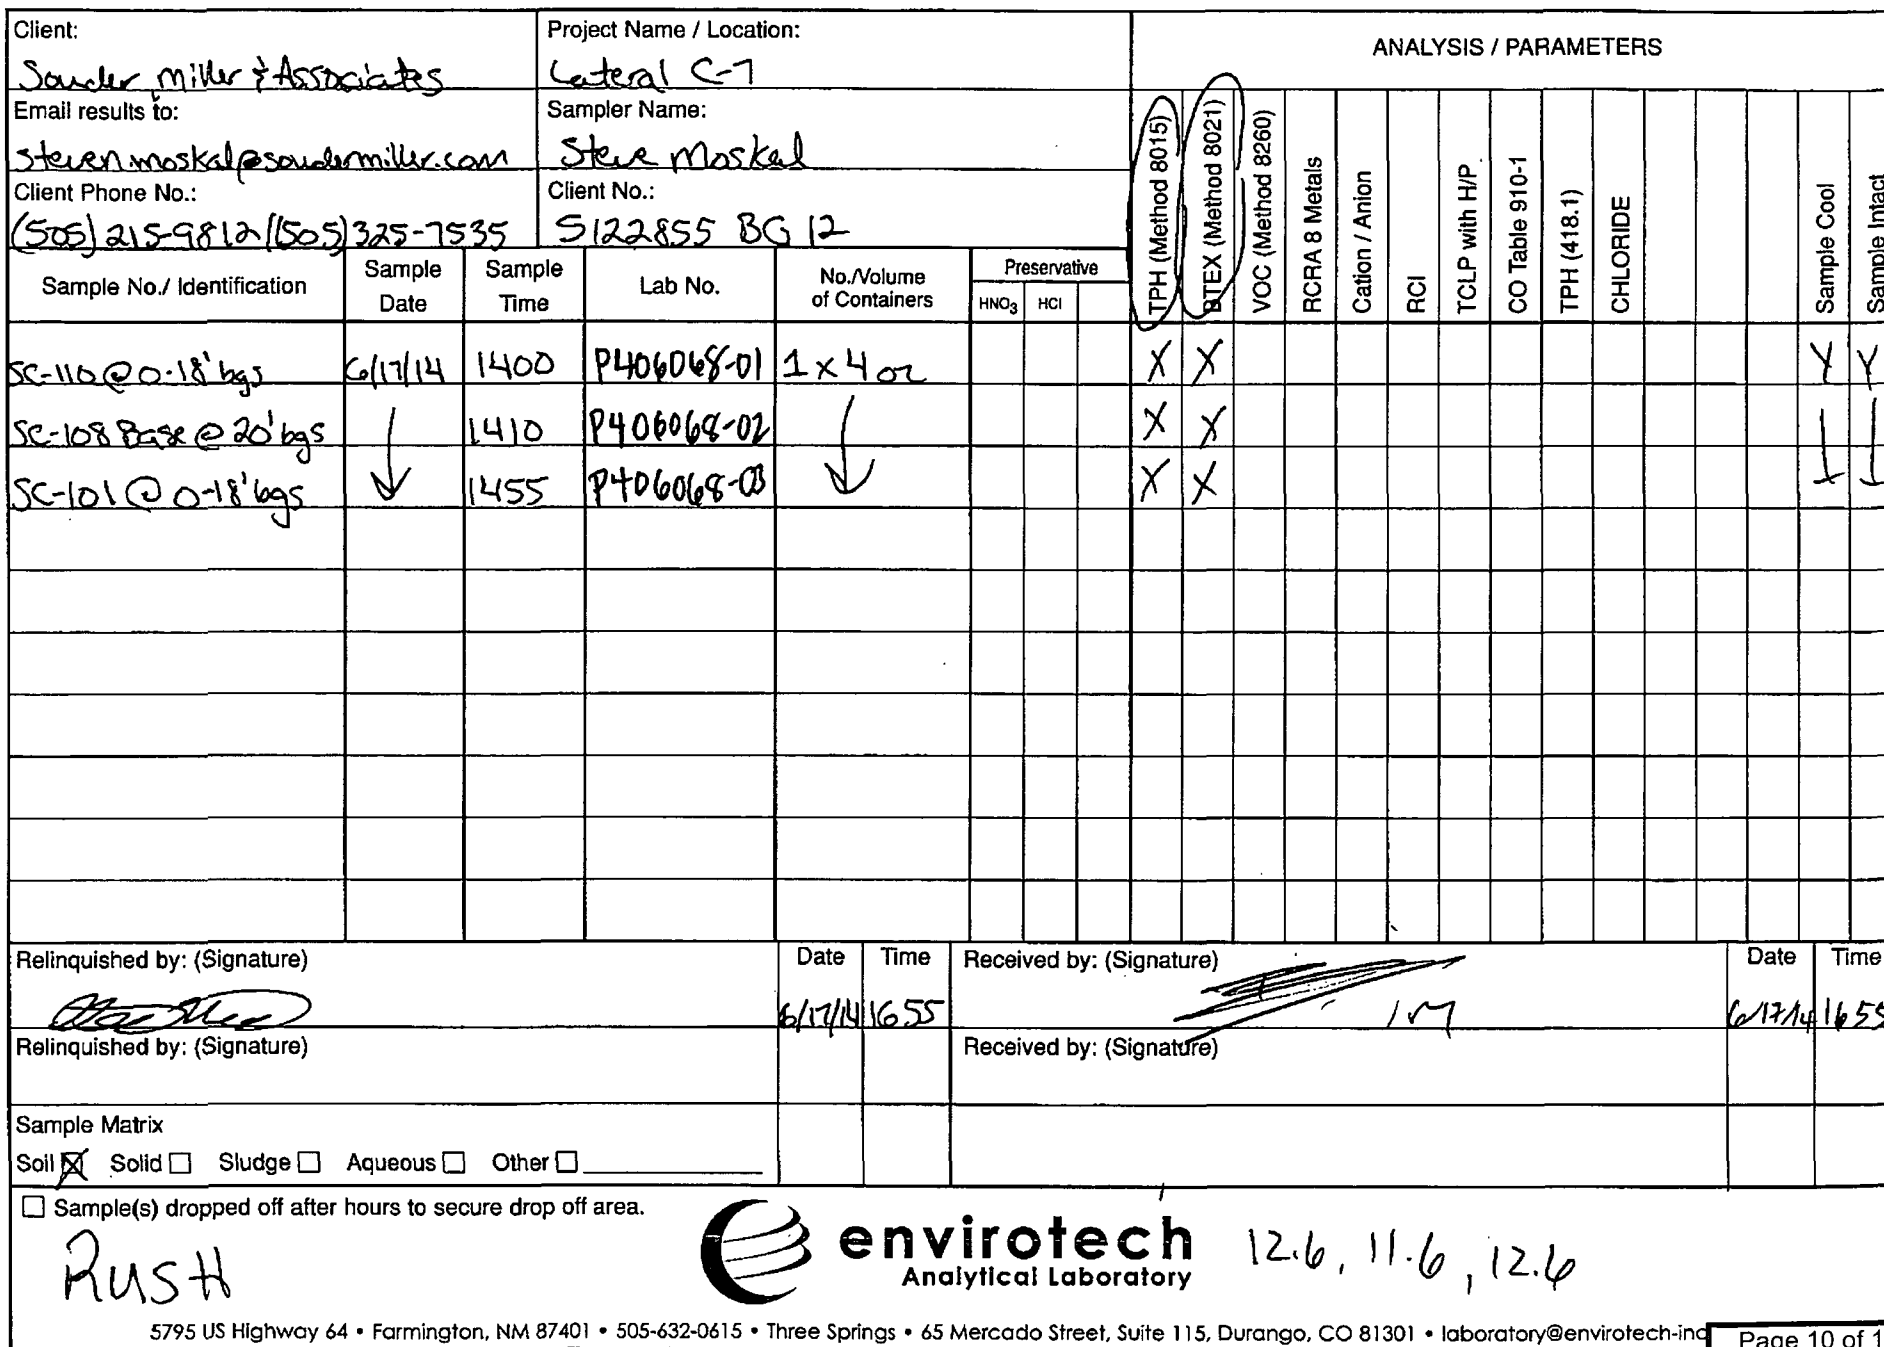 Client:
Souder, Miller & Associates
Project Name / Location:
Lateral C-7
ANALYSIS / PARAMETERS
Email results to:
steven.moskal@soudermiller.com
Sampler Name:
Steve Moskal
Client Phone No.:
(505) 215-9812/(505)325-7535
Client No.:
5122855 BG 12
Sample No./ Identification
Sample Date
Sample Time
Lab No.
No./Volume of Containers
Preservative
HNO3
HCl
TPH (Method 8015)
BTEX (Method 8021)
VOC (Method 8260)
RCRA 8 Metals
Cation / Anion
RCI
TCLP with H/P
CO Table 910-1
TPH (418.1)
CHLORIDE
Sample Cool
Sample Intact
SC-110 @ 0-18' bgs 6/17/14 1400 P406068-01 1 x 4 oz X X Y Y
SC-108 Base @ 20' bgs 1410 P406068-02 X X
SC-101 @ 0-18' bgs 1455 P406068-03 X X
Relinquished by: (Signature)
Date
Time
6/17/14 1655
Received by: (Signature)
Date
Time
6/17/14 1655
Relinquished by: (Signature)
Received by: (Signature)
Sample Matrix
Soil Solid Sludge Aqueous Other
Sample(s) dropped off after hours to secure drop off area.
RUSH
envirotech
Analytical Laboratory
12.6, 11.6, 12.6
5795 US Highway 64 • Farmington, NM 87401 • 505-632-0615 • Three Springs • 65 Mercado Street, Suite 115, Durango, CO 81301 • laboratory@envirotech-inc
Page 10 of 1